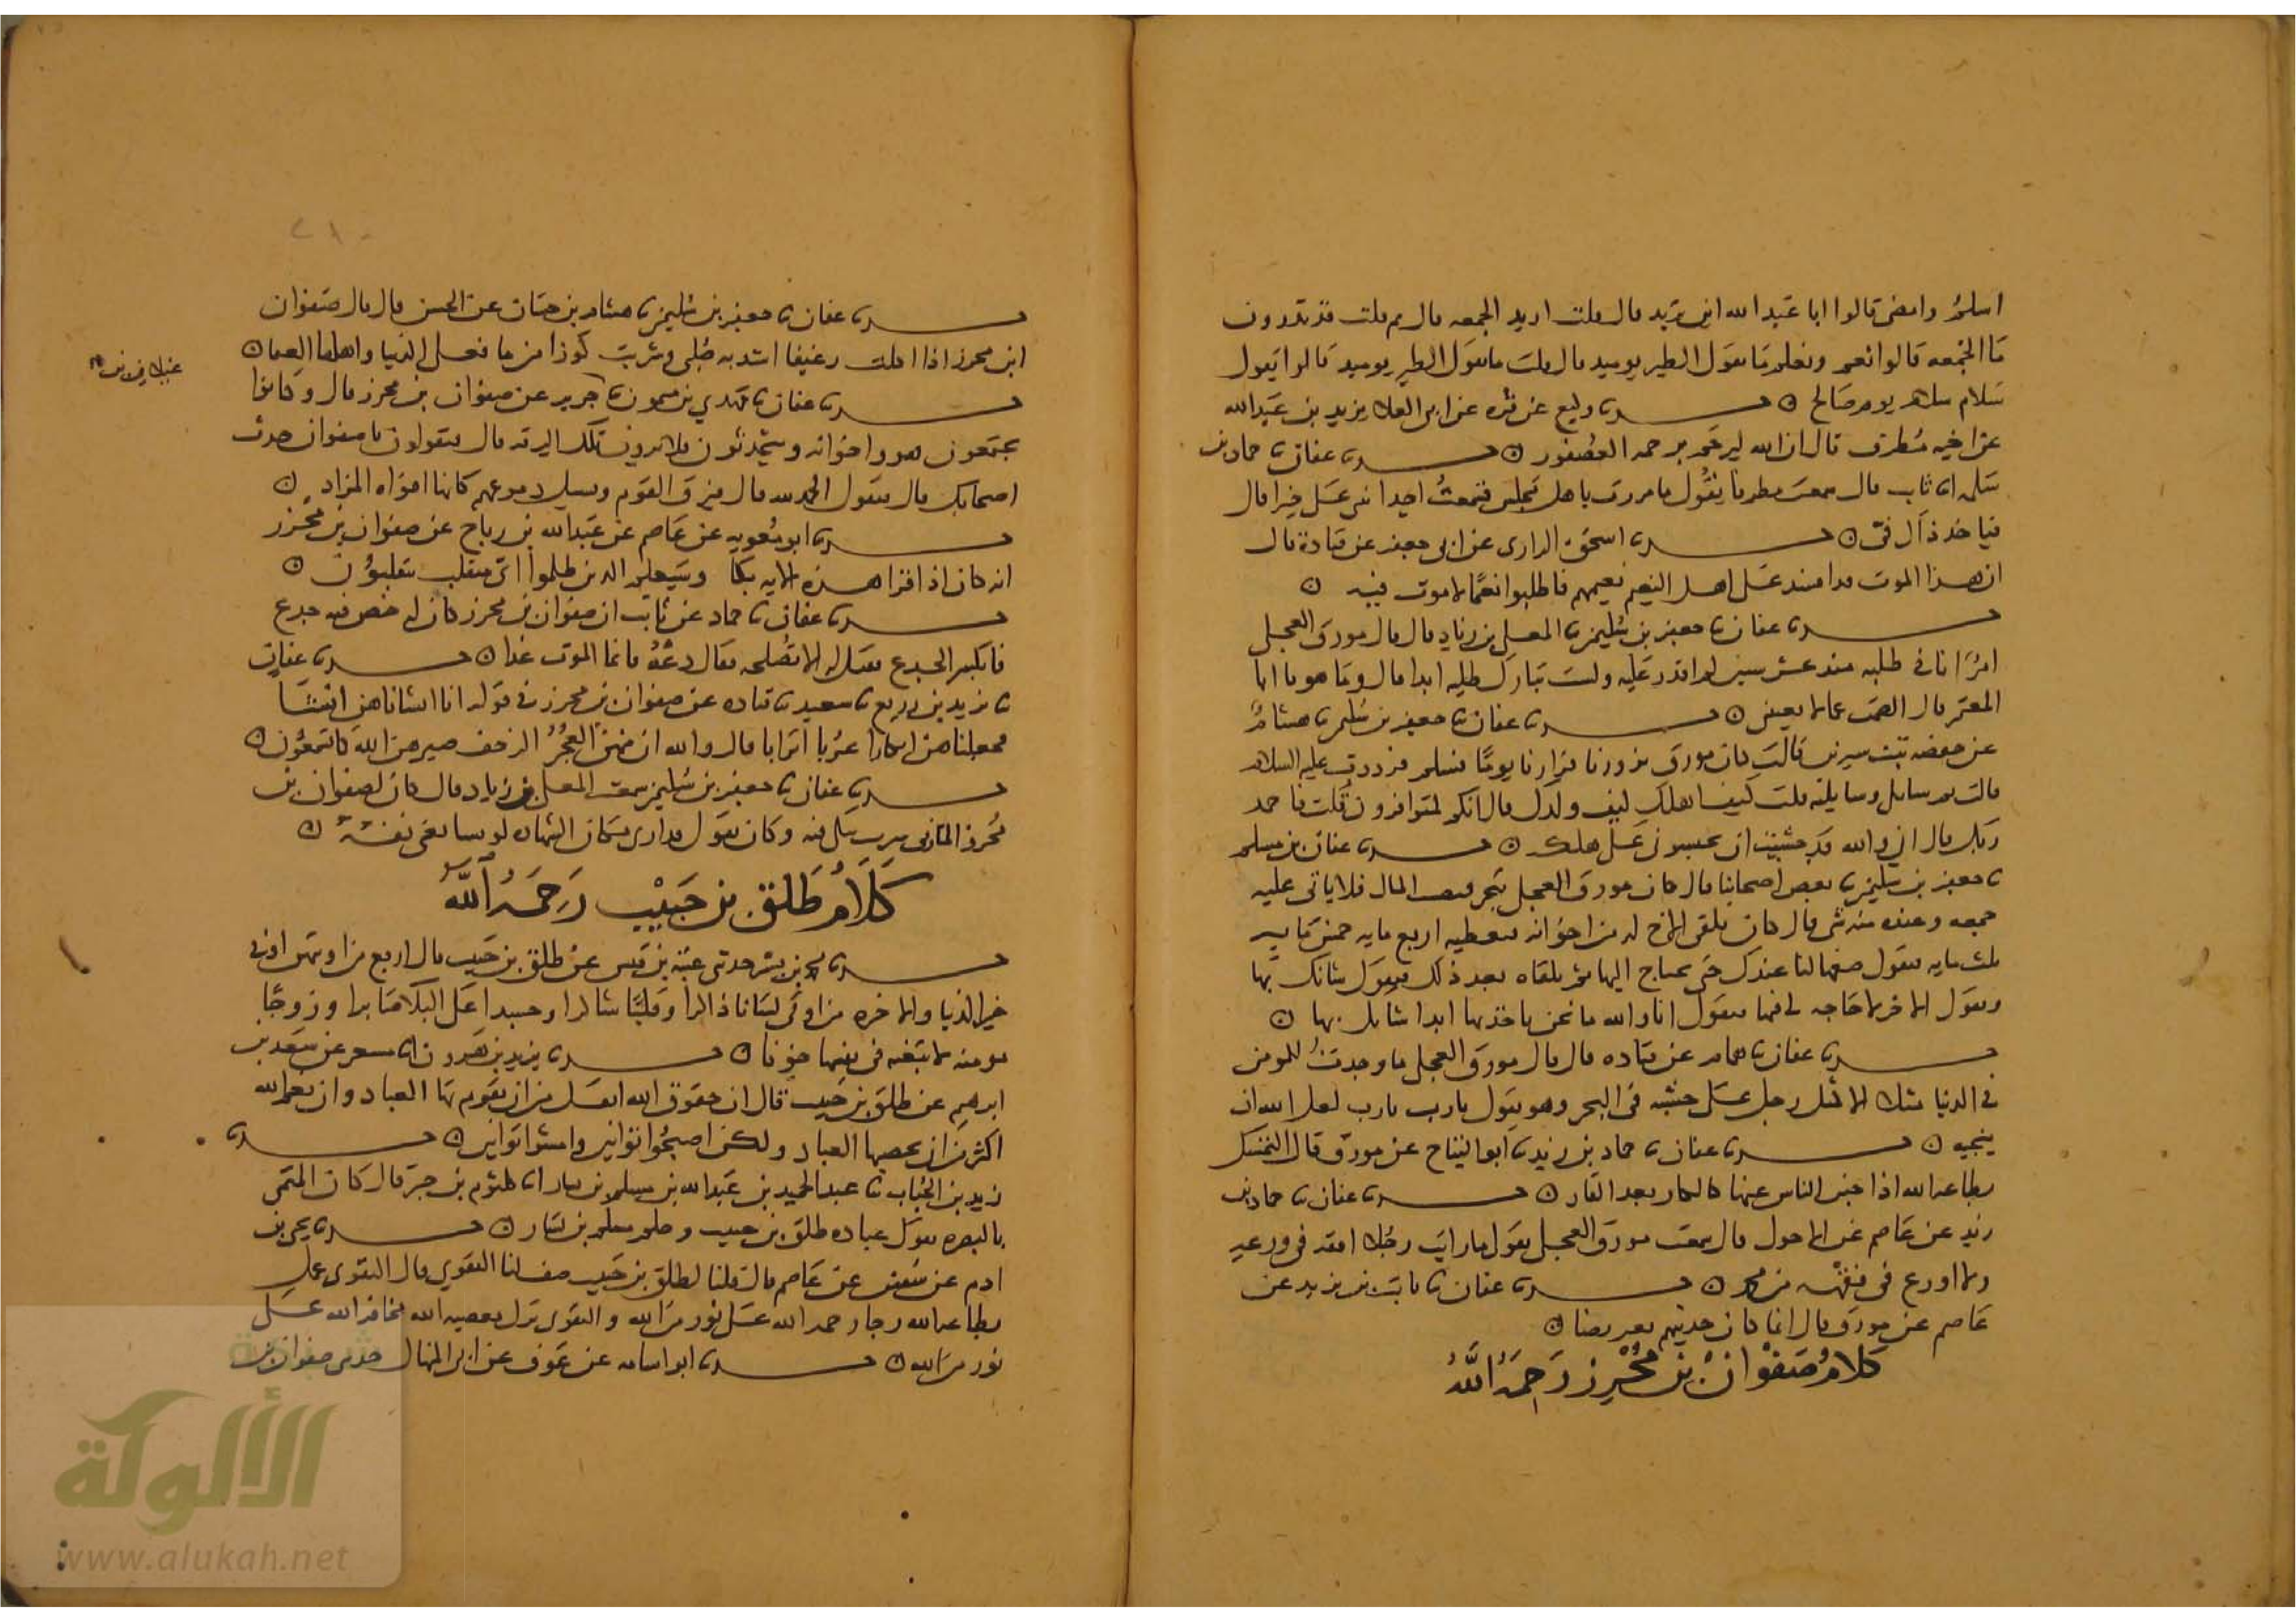 اسلم وامض قالوا ابا عبد الله اين تريد قال قلت اريد الجمعه قال ثم قلت قد تدرون
ما الجمعه قالوا نعم ونعلم ما تقول الطير يوميد قال قلت ما تقول الطير يوميد قالوا يقول
سلام سلام يوم صالح ○ حدثنا وكيع عن قره عن ابي العلا يزيد بن عبد الله
عن اخيه مطرف قال ان الله ليرحم برحمه العصفور ○ حدثنا عفان ثنا حماد بن
سلمه انا ثابت قال سمعت مطرفا يقول ما مررت باهل مجلس فسمعت احدا يثني علي خيرا قال
فياخذ ذاك في ○ حدثنا اسحق الرازي عن ابي جعفر عن قتادة قال
ان هذا الموت قد افسد على اهل النعيم نعيمهم فاطلبوا نعيما لا موت فيه ○
حدثنا عفان ثنا جعفر بن سليمن ثنا المعلى بن زياد قال قال مورق العجلي
امر انا في طلبه منذ عشر سنين لم اقدر عليه ولست بتارك طلبه ابدا قال وما هو يا ابا
المعتمر قال الصمت عما لا يعنيني ○ حدثنا عفان ثنا جعفر بن سليمن ثنا هشام
عن حفصه بنت سيرين قالت كان مورق يزورنا فزارنا يوما فسلم فرددت عليه السلام
قالت ثم سايلني وسايلته قلت كيف اهلك كيف ولدك قال انهم لمتوافرون قلت فاحمد
ربك قال اني والله قد خشيت ان يحبسوني على هلكه ○ حدثنا عفان بن مسلم
ثنا جعفر بن سليمن ثنا بعض اصحابنا قال كان مورق العجلي يتجر فيصيب المال فلا ياتي عليه
جمعه وعنده منه شي قال كان يلقى الاخ له من اخوانه فيعطيه اربع مايه خمس مايه
ثلث مايه فيقول ضعها لنا عندك حتى نحتاج اليها ثم يلقاه بعد ذلك فيقول شانك بها
ويقول الاخر لا حاجه لي فيها فيقول انا والله ما نحن باخذيها ابدا شانك بها ○
حدثنا عفان ثنا همام عن قتاده قال قال مورق العجلي ما وجدت للمومن
في الدنيا مثلا الا مثل رجل على خشبه في البحر وهو يقول يا رب يا رب لعل الله ان
ينجيه ○ حدثنا عفان ثنا حماد بن زيد ثنا ابو التياح عن مورق قال المتمسك
بطاعه الله اذا جبن الناس عنها كالكار بعد الفار ○ حدثنا عفان ثنا حماد بن
زيد عن عاصم عن الاحول قال سمعت مورق العجلي يقول ما رايت رجلا افقه في ورعه
ولا اورع في فقهه من محمد ○ حدثنا عفان ثنا ثابت بن يزيد عن
عاصم عن مورق قال انما كان حديثهم تعريضا ○
كلام صفوان بن محرز رحمه الله
٢١٠
حدثنا عفان ثنا جعفر بن سليمن ثنا هشام بن حسان عن الحسن قال قال صفوان
ابن محرز اذا اكلت رغيفا اشد به صلبي وشربت كوزا من ما فعلى الدنيا واهلها العفا ○
حدثنا عفان ثنا مهدي بن ميمون ثنا جرير عن صفوان بن محرز قال وكانوا
يجتمعون هو واخوانه ويتحدثون فلا يرون تلك الرقه قال فيقولون يا صفوان حدث
اصحابك قال فيقول الحمد لله قال فيرق القوم وتسيل دموعهم كانها افواه المزاد ○
حدثنا ابو معويه عن عاصم عن عبد الله بن رباح عن صفوان بن محرز
انه كان اذا قرا هذه الايه بكا وسيعلم الذين ظلموا اي منقلب ينقلبون ○
حدثنا عفان ثنا حماد عن ثابت ان صفوان بن محرز كان له خص فيه جذع
فانكسر الجذع فقيل له الا تصلحه فقال دعه فانما اموت غدا ○ حدثنا عفان
ثنا يزيد بن زريع ثنا سعيد ثنا قتاده عن صفوان بن محرز في قوله انا انشاناهن انشا
فجعلناهن ابكارا عربا اترابا قال والله ان منهن العجز الزحف صيرهن الله كما تسمعون ○
حدثنا عفان ثنا جعفر بن سليمن سمعت المعلى بن زياد قال كان لصفوان بن
محرز المازني سرب يبكي فيه وكان يقول قد ارى مكان الشهاده لو تشايعني نفسي ○
كلام طلق بن حبيب رحمه الله
حدثنا محمد بن بشر حدثني عتبه بن قيس عن طلق بن حبيب قال اربع من اوتيهن اوتي
خير الدنيا والاخره من اوتي لسانا ذاكرا وقلبا شاكرا وجسدا على البلا صابرا وزوجا
مومنه لا تبغيه في نفسها خونا ○ حدثنا يزيد بن هرون انا مسعر عن سعد بن
ابرهيم عن طلق بن حبيب قال ان حقوق الله اثقل من ان يقوم بها العباد وان نعم الله
اكثر من ان يحصيها العباد ولكن اصبحوا توابين وامسوا توابين ○ حدثنا
زيد بن الحباب ثنا عبد الحميد بن عبد الله بن مسلم بن يسار انا كلثوم بن جبر قال كان المتمني
بالبصره يقول عباده طلق بن حبيب وحلم مسلم بن يسار ○ حدثنا يحيى بن
ادم عن سفين عن عاصم قال قلنا لطلق بن حبيب صف لنا التقوى قال التقوى عمل
بطاعه الله رجا رحمه الله على نور من الله والتقوى ترك معصيه الله مخافه الله على
نور من الله ○ حدثنا ابو اسامه عن عوف عن ابي المنهال حدثني صفوان بن
الألوكة
www.alukah.net